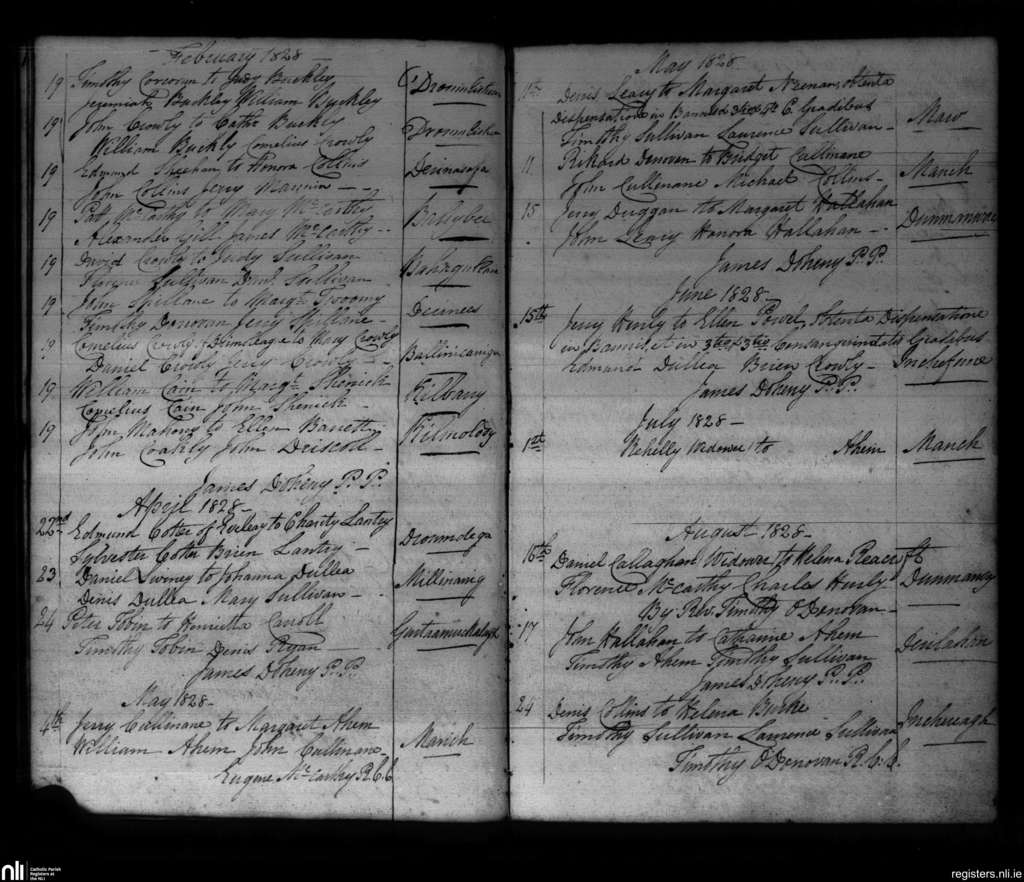 February 1828
19 Timothy Corcoran to Judy Buckley
Jeremiah Buckley William Buckley
19 John Crowly to Cathe Buckley
William Buckly Cornelius Crowly
19 Edmund Sheehan to Honora Collins
John Collins Jerry Mannin
19 Patt McCarthy to Mary McCarthy
Alexander Gill James McCarthy
19 David Crowly to Judy Sullivan
Sullivan Danl Sullivan
19 John Spillane to Margt
Timothy Donovan Jerry Spillane
19 Cornelius Crowly to Mary Crowly
Daniel Crowly Jerry Crowly
Ballinicarriga
19 William Cain to Margt Shenick
Cornelius Cain John Shenick
Kilbarry
19 John Mahony to Ellen Barrett
John Coakly John Driscol
James Doheny P.P.
April 1828
22nd Edmund Cotter of to Charity Lantry
Sylvester Cotter Brien Lantry
Dromidega
23 Daniel Swiney to Johanna Dullea
Denis Dullea Mary Sullivan
24 Peter Tobin to Henrietta Carroll
Timothy Tobin Denis Ryan
James Doheny P.P.
May 1828
4th Jerry Cullinane to Margaret Ahern
William Ahern John Cullinane
Manch
Eugene McCarthy R.C.C
May 1828
11th Denis Leary to Margaret Neenan obtenta
Dispensatione in Bannis & Gradibus
Timothy Sullivan Laurence Sullivan
11 Rickard Donovan to Bridget Cullinane
John Cullinane Michael Collins
Manch
15 Jerry Duggan to Margaret Hallahan
John Leary Honora Hallahan
Dunmanway
James Doheny P.P.
June 1828
15th Jerry Hurly to Ellen Powel, Obtenta Dispensatione
in Bannis, et in 3tio & 3tio Consanguinitatis Gradibus
Edmund Dullea Brien Crowly
Inchafune
James Doheny P.P.
July 1828
1st Kehelly Widower to Ahern Manch
August 1828
16th Daniel Callaghan Widower to Helena
Florence McCarthy Charles Hurly
Dunmanway
By Rev. Timothy O'Donovan
17 John Hallahan to Catharine Ahern
Timothy Ahern Timothy Sullivan
James Doheny P.P.
24 Denis Collins to Helena Burke
Timothy Sullivan Laurence Sullivan
Inchereagh
Timothy O'Donovan R.C.C.
nli Catholic Parish
Registers at
the NLI
registers.nli.ie